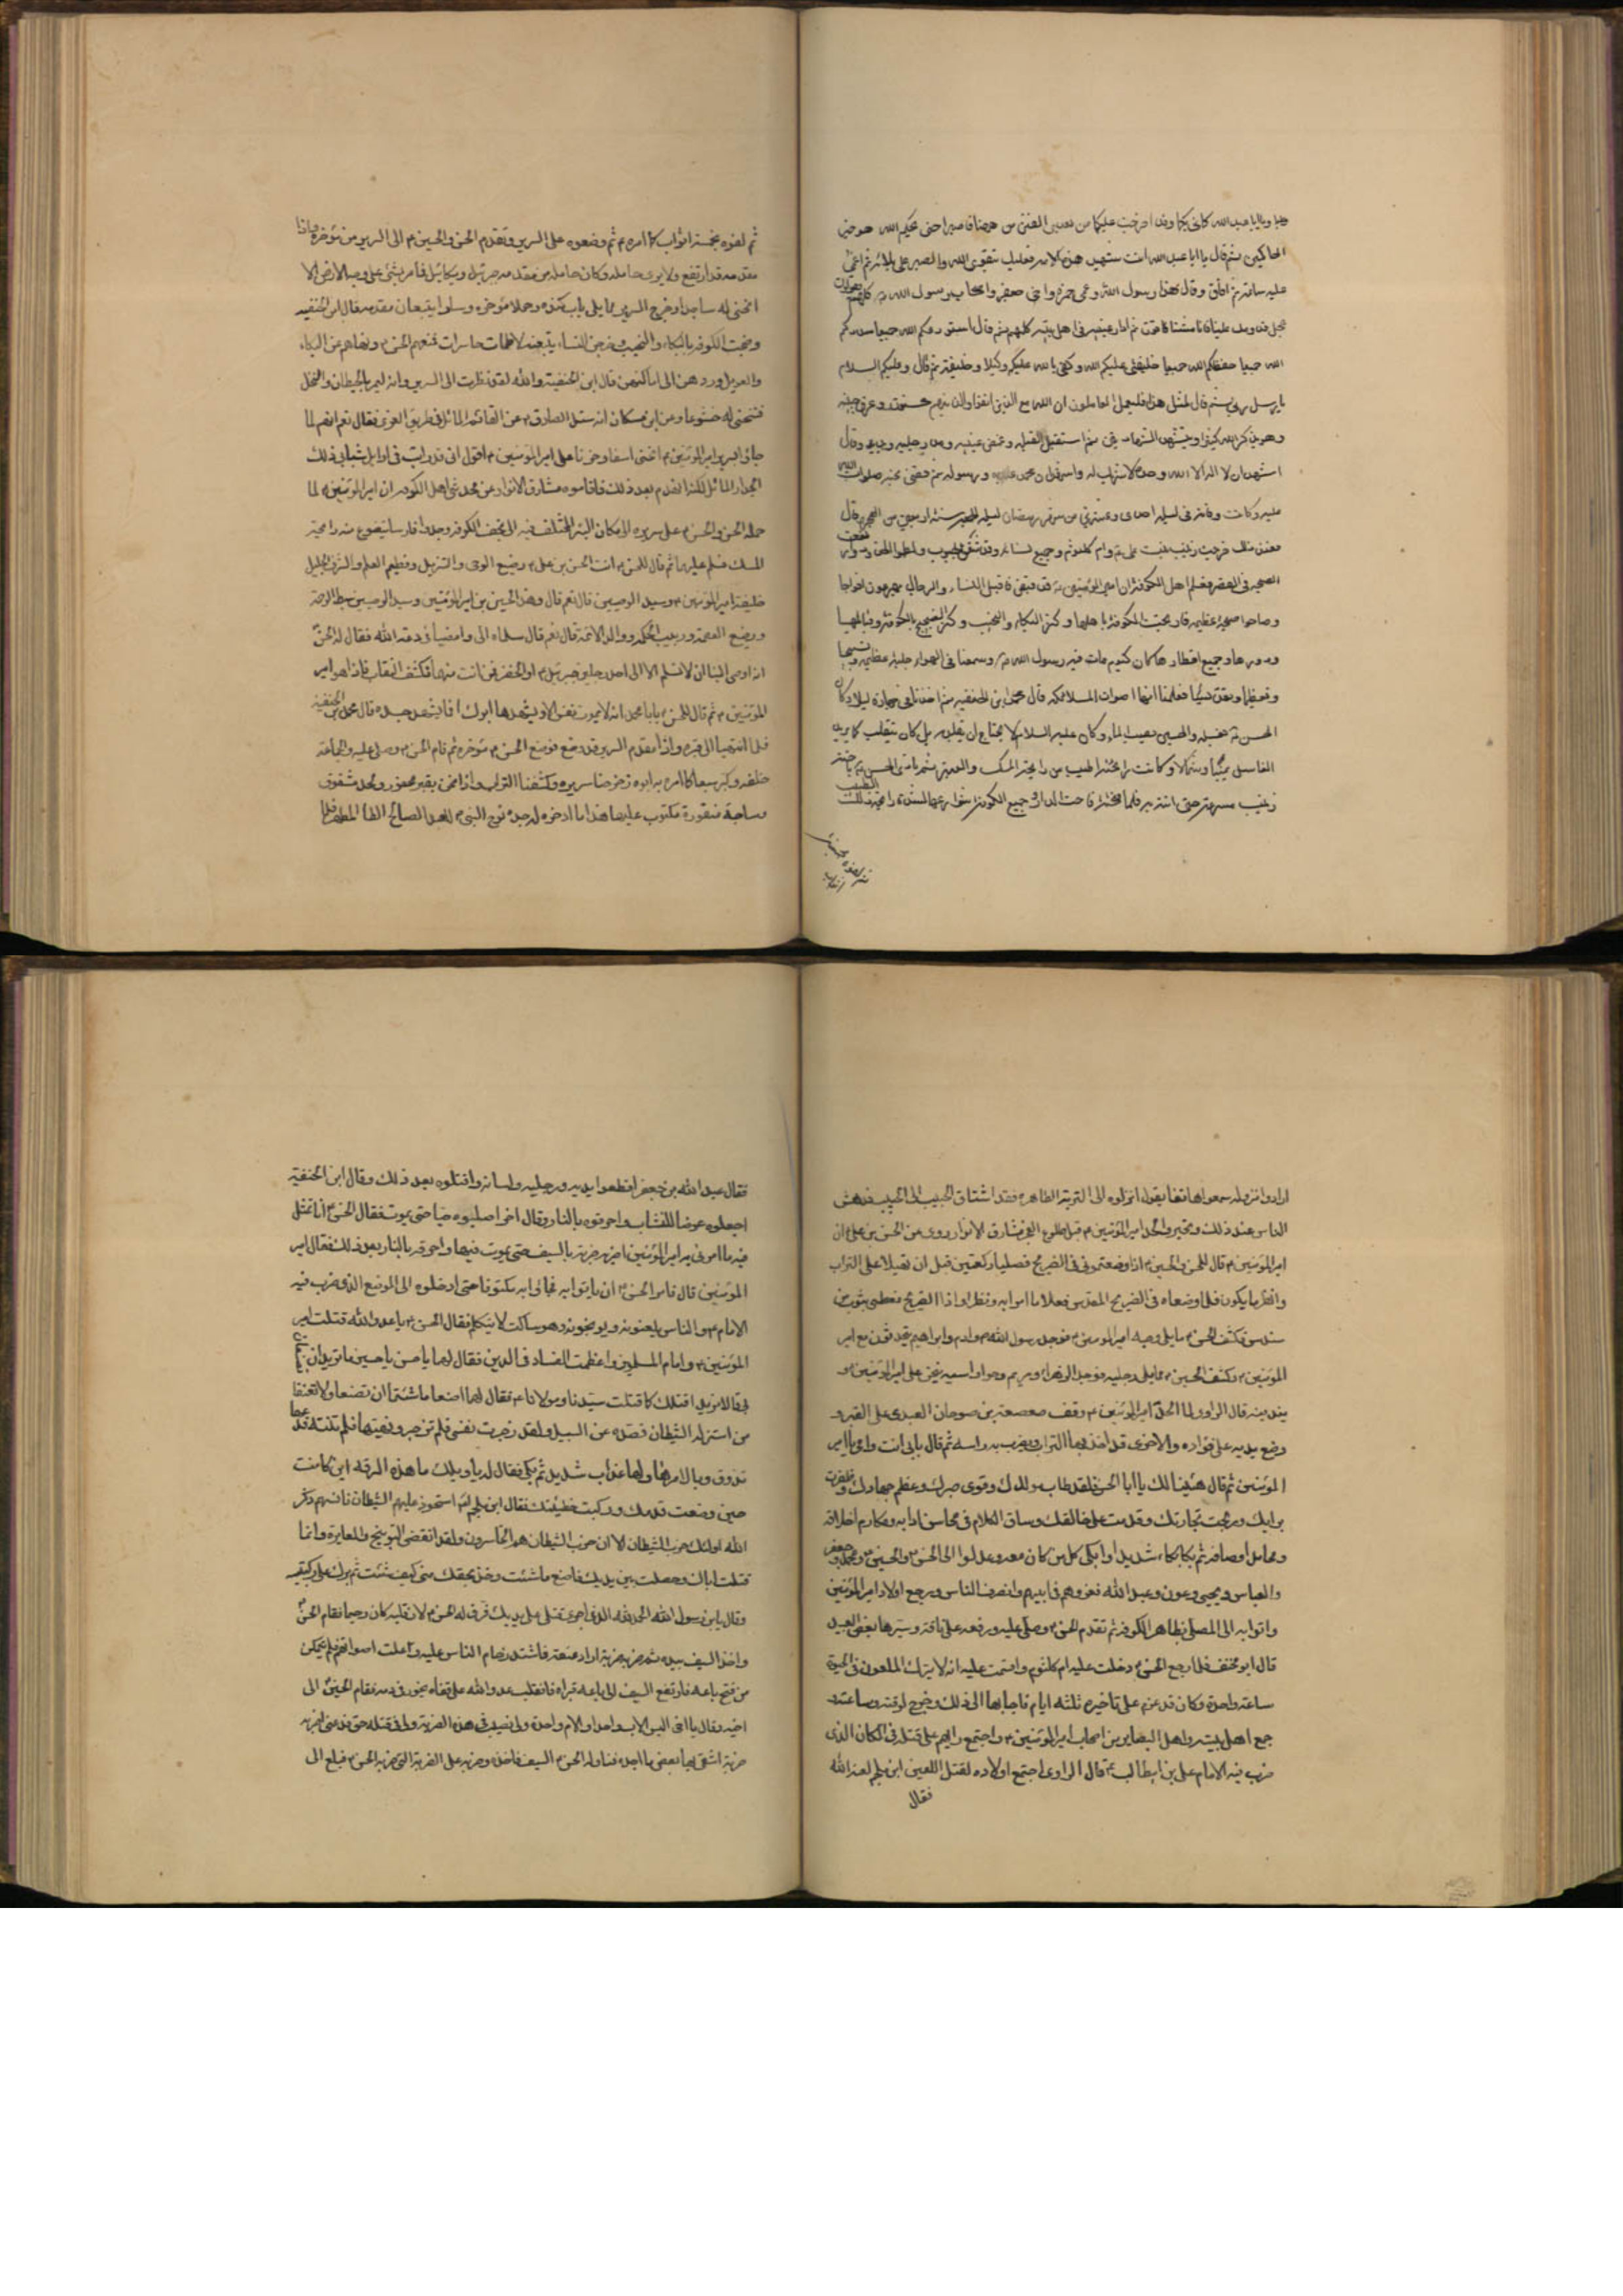 ويا ابا عبدالله كاني بكما وقد خرجت عليكما من بعدي الفتن من هيهنا فاصبرا حتى يحكم الله هو خير
الحاكمين ثم قال يا ابا عبدالله انت شهيد هذه الامة فعليك بتقوى الله والصبر على بلائه ثم اغمي
عليه ساعة ثم افاق وقال هذا رسول الله وعمي حمزة واخي جعفر واصحاب رسول الله ص كلهم يقولون
عجل قدومك علينا فانا مشتاقون ثم ادار عينيه في اهل بيته كلهم ثم قال استودعكم الله جميعا سددكم
الله جميعا حفظكم الله جميعا خليفتي عليكم الله وكفى بالله عليكم وكيلا وخليفة ثم قال وعليكم السلام
يا رسل ربي ثم قال لمثل هذا فليعمل العاملون ان الله مع الذين اتقوا والذين هم محسنون وعرق جبينه
وهو يذكر الله كثيرا ويتشهد الشهادتين ثم استقبل القبلة وغمض عينيه ومد رجليه ويديه وقال
اشهد ان لا اله الا الله وحده لا شريك له واشهد ان محمدا عبده ورسوله ثم قضى نحبه صلوات الله
عليه وكانت وفاته في ليلة احدى وعشرين من شهر رمضان ليلة الجمعة سنة اربعين من الهجرة قال
فعند ذلك خرجت زينب بنت علي ع وام كلثوم وجميع نسائه وقد شققن الجيوب ولطمن الخدود وارتفعت
الصيحة في القصر فعلم اهل الكوفة ان امير المؤمنين ع قد قبض فاقبل النساء والرجال يهرعون افواجا
وصاحوا صيحة عظيمة فارتجت الكوفة باهلها وكثر البكاء والنحيب وكثر الضجيج بالكوفة وقبايلها
ودورها وجميع اقطارها كان كيوم مات فيه رسول الله ص وسمعنا في الهواء جلبة عظيمة وتسبيحا
وتقديسا فعلمنا انها اصوات الملائكة قال محمد ابن الحنفية ثم اخذنا في جهازه ليلا وكان
الحسن ع يغسله والحسين يصب الماء وكان عليه السلام لا يحتاج الى من يقلبه بل كان يتقلب كما يريد
الغاسل يمينا وشمالا وكانت رائحته اطيب من رائحة المسك والعنبر ثم نادى الحسن ع باخته
زينب فلما فتحته فاحت الدار وجميع الكوفة وشوارعها لشدة رائحة ذلك الطيب
ثم لفوه بخمسة اثواب كما امره ع ثم وضعوه على السرير وتقدم الحسن والحسين ع الى السرير من مؤخره واذا
مقدمه قد ارتفع ولا يرى حامله وكان حاملاه من مقدمه جبرئيل وميكائيل فما مر بشيء على وجه الارض الا
انحنى له ساجدا وخرج السرير مما يلي باب كنده وحملا مؤخره وسارا يتبعان مقدمه قال ابن الحنفيه
وضجت الكوفة بالبكاء والنحيب وخرجن النساء يتبعنه لاطمات حاسرات فمنعهم الحسن ع ونهاهم عن البكاء
والعويل وردهن الى اماكنهن قال ابن الحنفية والله لقد نظرت الى السرير وانه ليمر بالحيطان والنخل
فتنحني له خشوعا وعن ابن مسكان انه سئل الصادق ع عن القائم المائل في طريق الغري فقال نعم انهم لما
جازوا بسرير امير المؤمنين ع انحنى اسفا وحزنا على امير المؤمنين ع اقول اني قد رايت في اوايل شبابي ذلك
الجدار المائل لكنه انهدم بعد ذلك فاقاموه مشارق الانوار عن محدثي اهل الكوفة ان امير المؤمنين ع لما
حمله الحسن والحسين ع على سريره الى مكان البئر المختلف فيه الى نجف الكوفة وجدوا فارسا يتضوع منه رايحة
المسك فسلم عليهما ثم قال للحسن ع انت الحسن بن علي ع رضيع الوحي والتنزيل وفطيم العلم والشرف الجليل
خليفة امير المؤمنين ع وسيد الوصيين قال نعم قال وهذا الحسين بن امير المؤمنين وسيد الوصيين سبط الرحمة
ورضيع العصمة وربيب الحكمة ووالد الائمة قال نعم قال سلماه الي وامضيا في دعة الله فقال له الحسن
انه اوصى الينا ان لا نسلم الا الى احد رجلين جبرئيل ع او الخضر فمن انت منهما فكشف النقاب فاذا هو امير
المؤمنين ع ثم قال للحسن ع يا ابا محمد انه لا تموت نفس الا ويشهدها ابوك افما يشهد جسده قال محمد بن الحنفية
فلما انتهينا الى قبره واذا مقدم السرير قد وضع فوضع الحسن ع مؤخره ثم قام الحسن ع وصلى عليه والجماعة
خلفه وكبر سبعا كما امره به ابوه زحزحنا سريره وكشفنا التراب واذا نحن بقبر محفور ولحد مشقوق
وساجة منقورة مكتوب عليها هذا ما ادخره له جده نوح النبي ع للعبد الصالح الطاهر المطهر فلما
ارادوا نزوله سمعوا هاتفا يقول انزلوه الى التربة الطاهرة فقد اشتاق الحبيب الى الحبيب فدهش
الناس عند ذلك وتحيروا والحد امير المؤمنين ع قبل طلوع الفجر مشارق الانوار روي عن الحسن بن علي ان
امير المؤمنين ع قال للحسن والحسين ع اذا وضعتموني في الضريح فصليا ركعتين قبل ان تهيلا علي التراب
وانظرا ما يكون فلما وضعاه في الضريح المقدس فعلا ما امرا به ونظرا واذا الضريح مغطى بثوب من
سندس فكشف الحسن ع مما يلي وجه امير المؤمنين ع فوجد رسول الله ص وادم وابراهيم يتحدثون مع امير
المؤمنين ع وكشف الحسين ع مما يلي رجليه فوجد الزهراء ومريم وحوا واسية ينحن على امير المؤمنين ع و
يندبنه قال الراوي لما الحد امير المؤمنين ع وقف صعصعة بن صوحان العبدي على القبر و
وضع يديه على فؤاده والاخرى قد اخذ بها التراب ويضرب به راسه ثم قال بابي انت وامي يا امير
المؤمنين ثم قال هنيئا لك يا ابا الحسن فلقد طاب مولدك وقوي صبرك وعظم جهادك وظفرت
برايك وربحت تجارتك وقدمت على خالقك وساق الكلام في محاسن ادابه ومكارم اخلاقه
ومحامل اوصافه ثم بكا بكاء شديدا وابكى كل من كان معه وعدلوا الى الحسن والحسين ومحمد وجعفر
والعباس ويحيى وعون وعبد الله فعزوهم في ابيهم وانصرف الناس ورجع اولاد امير المؤمنين
واتوا به الى المصلى بظاهر الكوفة ثم تقدم الحسن ع وصلى عليه ورفعه على ناقة وسيرها بعض العبيد
قال ابو مخنف فلما رجع الحسن ع دخلت عليه ام كلثوم واقسمت عليه انه لا يترك الملعون في الحيوة
ساعة واحدة وكان قد عزم على تاخيره ثلثة ايام فاجابها الى ذلك وخرج لوقته وساعته و
جمع اهل بيته واهل البصاير من اصحاب امير المؤمنين ع واجتمع رايهم على قتله في المكان الذي
ضرب فيه الامام علي بن ابيطالب ع قال الراوي اجتمع اولاده لقتل اللعين ابن ملجم لعنه الله
فقال
فقال عبد الله بن جعفر اقطعوا يديه ورجليه ولسانه واقتلوه بعد ذلك وقال ابن الحنفية
اجعلوه غرضا للنشاب واحرقوه بالنار وقال اخر اصلبوه حيا حتى يموت فقال الحسن ع انا ممتثل
فيه ما امرني به امير المؤمنين اضربه ضربة بالسيف حتى يموت فيها واحرقه بالنار بعد ذلك فقال امير
المؤمنين قال فامر الحسن ع ان ياتوا به فجاؤا به مكتوفا حتى ادخلوه الى الموضع الذي ضرب فيه
الامام ع والناس يلعنونه ويوبخونه وهو ساكت لا يتكلم فقال الحسن ع يا عدو الله قتلت امير
المؤمنين ع وامام المسلمين واعظمت الفساد في الدين فقال لهما يا حسن يا حسين ما تريدان
بي قالا نريد قتلك كما قتلت سيدنا ومولانا ع فقال لهما اصنعا ما شئتما ان تصنعا ولا تعنفا
من استزله الشيطان فصده عن السبيل ولقد زجرت نفسي فلم تنزجر ونهيتها فلم تنته فدعها
تذوق وبال امرها ولها عذاب شديد ثم بكى فقال له يا ويلك ما هذه الرقة اين كانت
حين وضعت قدمك وركبت خطيئتك فقال ابن ملجم لعنه استحوذ عليهم الشيطان فانساهم ذكر
الله اولئك حزب الشيطان الا ان حزب الشيطان هم الخاسرون ولقد انقضى التوبيخ والمعايرة وانما
قتلت اباك وحصلت بين يديك فاصنع ما شئت وخذ بحقك مني كيف شئت ثم برك على ركبتيه
وقال يابن رسول الله الحمد لله الذي اجرى قتلي على يديك فرق له الحسن ع لان قلبه كان رحيما فقام الحسن
واخذ السيف بيده فاشتد زحام الناس عليه وعلت اصواتهم فلم يتمكن
من فتح باعه فارتفع السيف الى باعه فبراه فانقلب عدو الله على قفاه يخور في دمه فقام الحسين الى
اخيه وقال يا اخي اليس الاب واحدا والام واحدة ولي نصيب في هذه الضربة ولي في قتله حق فدعني اضربه
ضربة اشفي بها بعض ما اجده فناوله الحسن ع السيف فاخذه وضربه على الضربة التي ضربه الحسن ع فبلغ الى